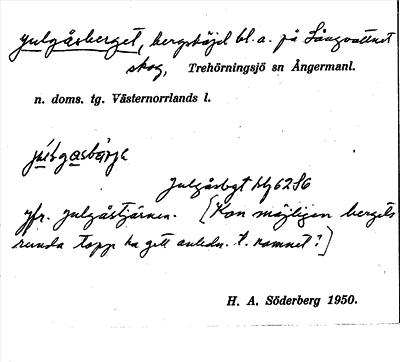 Julgåsberget, bergshöjd bl. a. på Långvattnet
skog, Trehörningsjö sn Ångermanl.
n. doms. tg. Västernorrlands l.
Julgåsbgt Hj6286
jfr. Julgåstjärnen. [Kan möjligen bergets
runda topp ha gett anledn. t. namnet?]
H. A. Söderberg 1950.